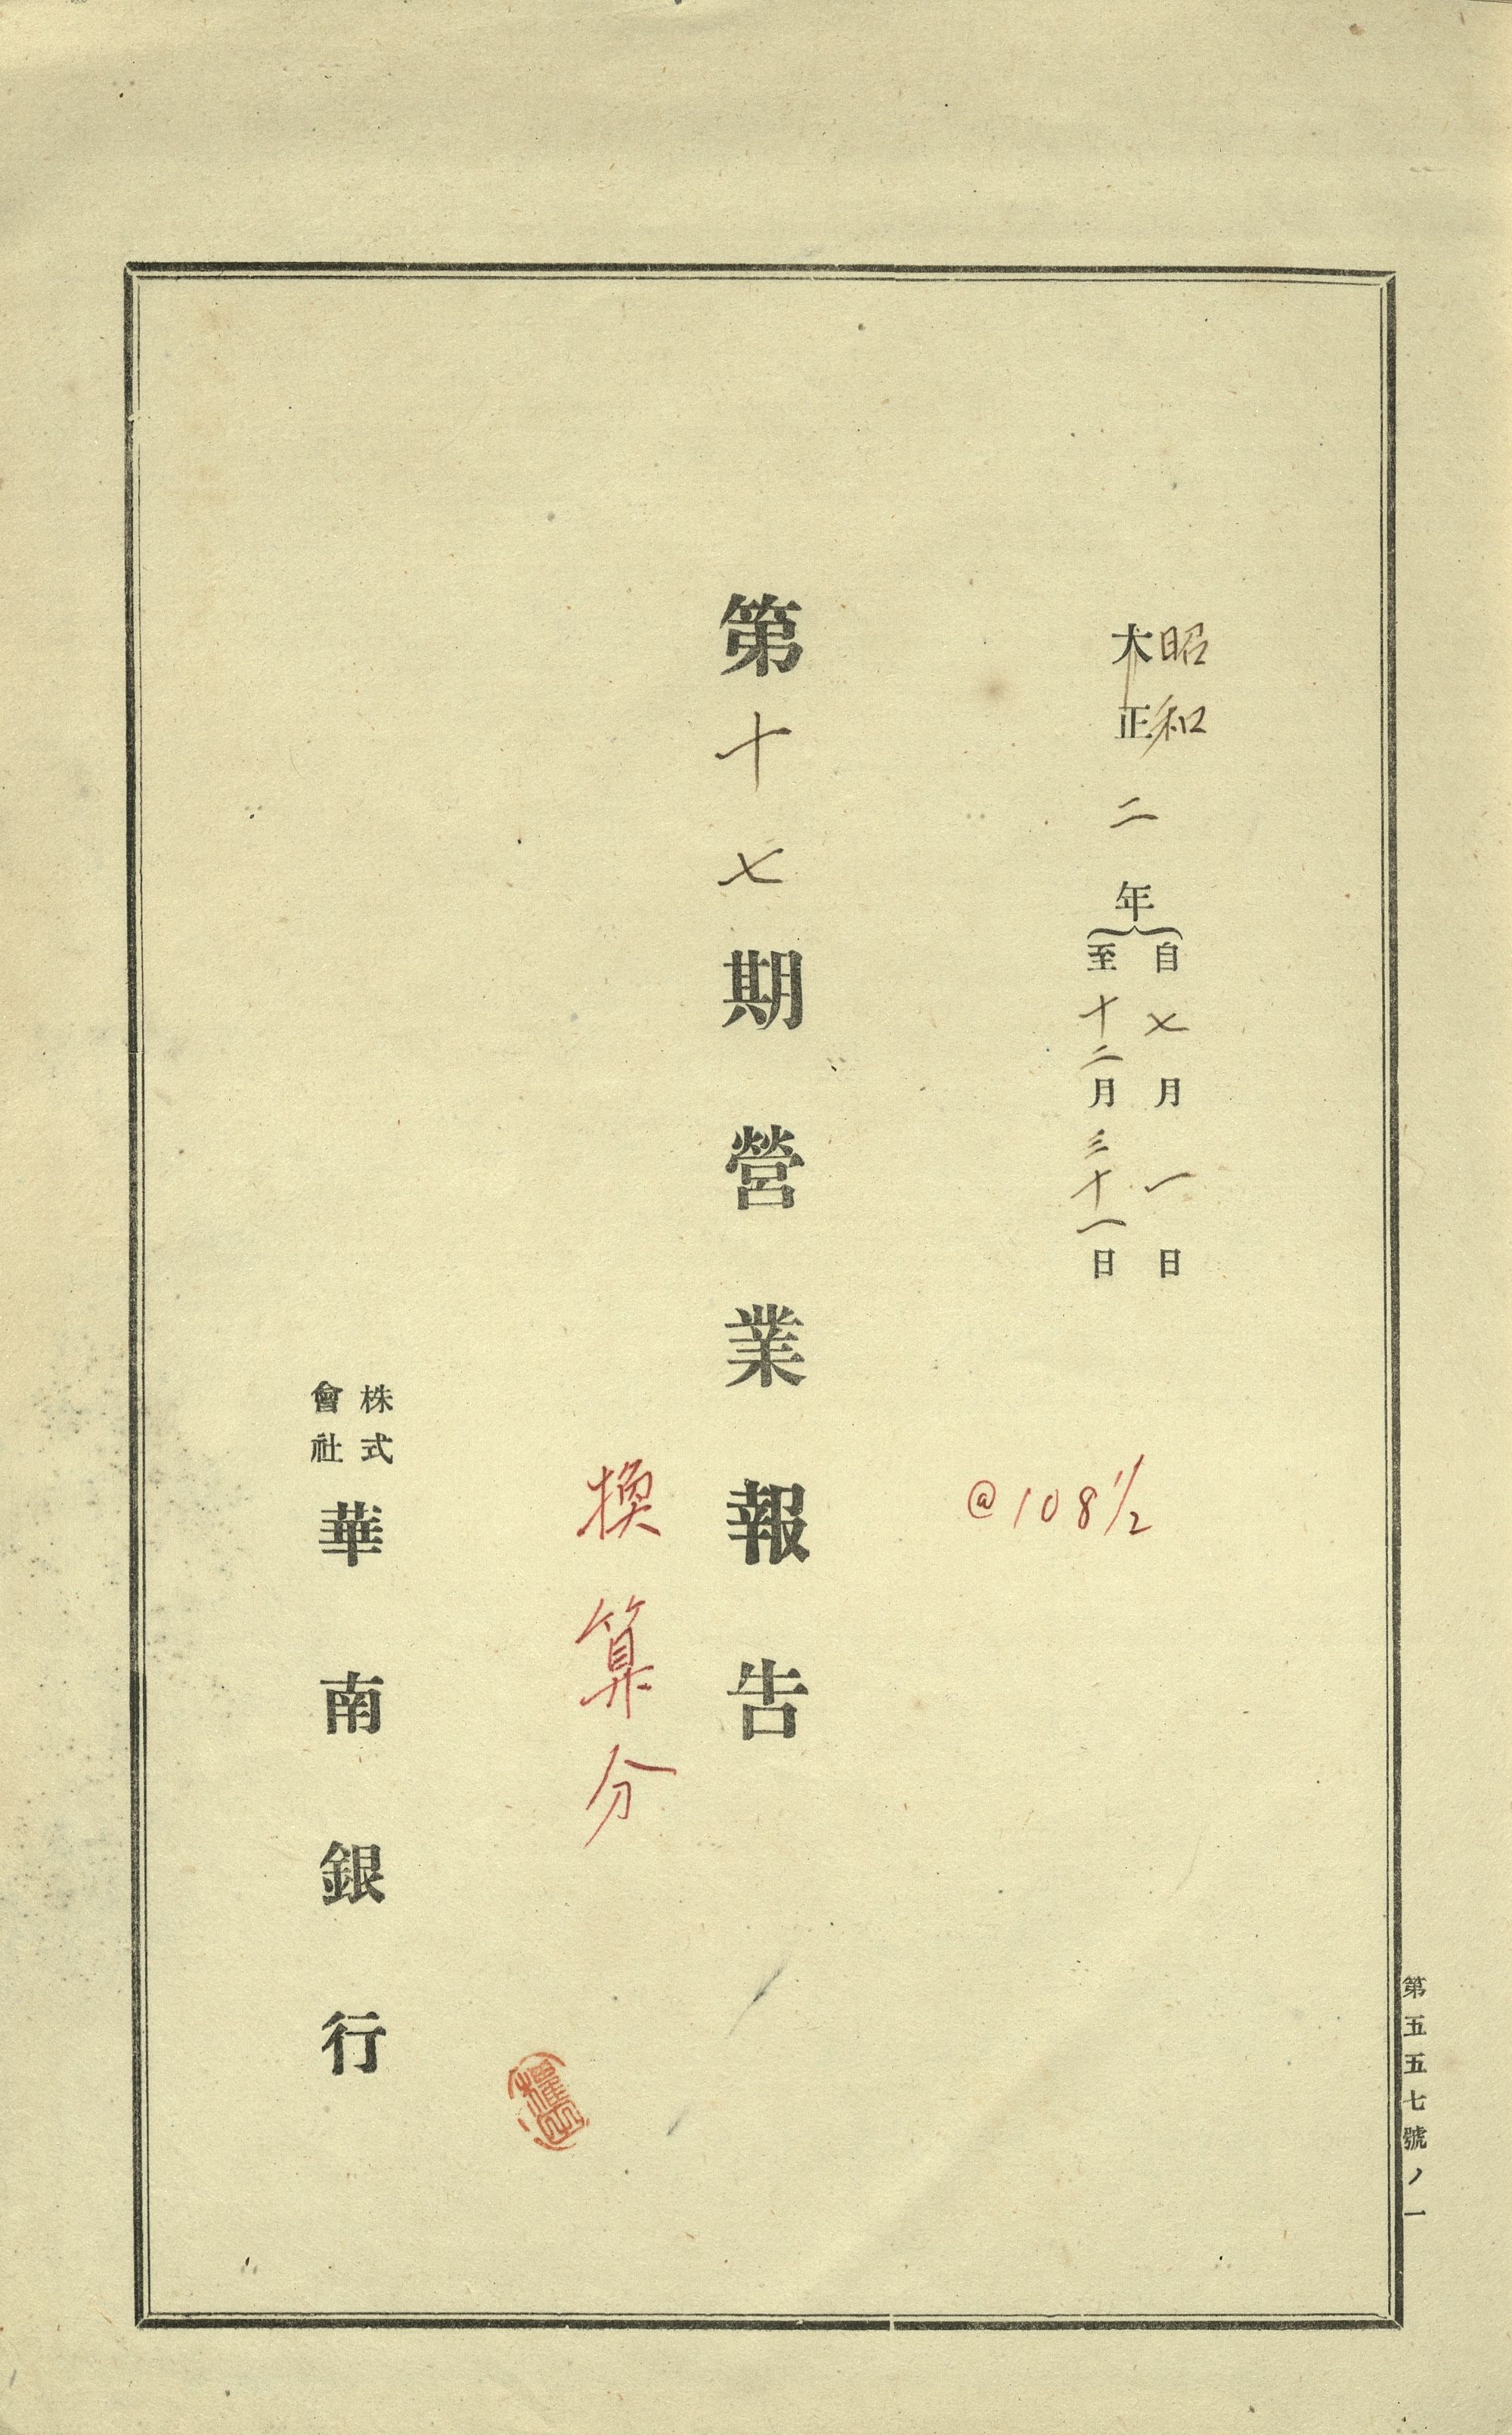 昭和
大正二年
自七月一日
至十二月三十一日
@108 1/2
第十七期營業報告
換算分
株式
會社
華南銀行
第五五七號ノ一